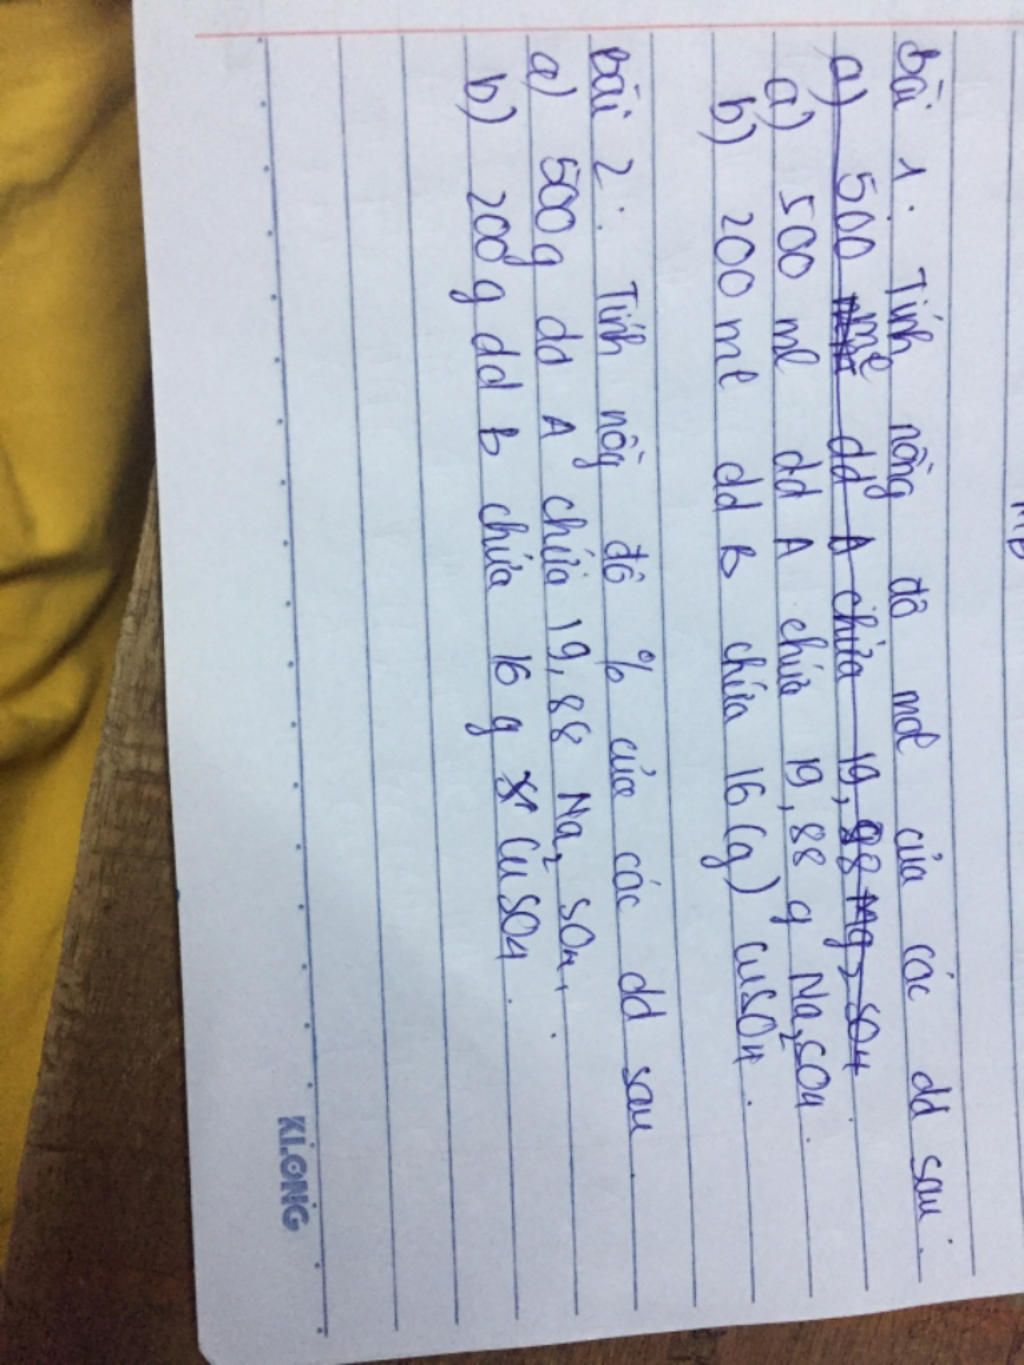 Bài 1: Tính nồng độ mol của các dd sau:
a) 500 ml dd A chứa 19,98 Mg2SO4.
a) 500 ml dd A chứa 19,88 g Na2SO4.
b) 200 ml dd B chứa 16 (g) CuSO4.
Bài 2: Tính nồng độ % của các dd sau
a) 500g dd A chứa 19,88 Na2SO4.
b) 200g dd B chứa 16 g CuSO4.
KLONG